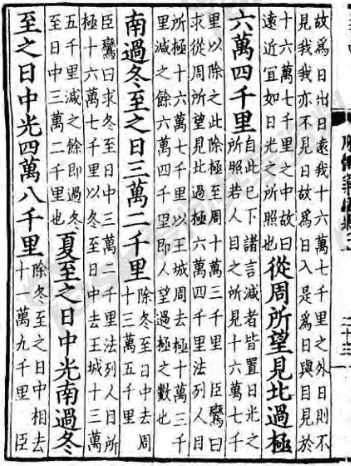 故爲日出日遠我十六萬七千里之外日則不
見我我亦不見日故爲日入是爲日與目見於
十六萬七千里之中故曰
遠近宜如日光之所照也
從周所望見北過極
六萬四千里
自此已下諸言減者皆置日光之
所照若人目之所見十六萬七千
里以除之此除極至周十萬三千里 臣鸞曰
求從周所望見北過極六萬四千里法列人目
所極十六萬七千里以王城周去極十萬三千
里減之餘六萬四千里即人望過極之數也
南過冬至之日三萬二千里
除冬至日中去周
十三萬五千里
臣鸞曰求冬至日中三萬二千里法列人目所
極十六萬七千里以冬至日中去王城十三萬
五千里減之餘即過冬
至日中三萬二千里也
夏至之日中光南過冬
至之日中光四萬八千里
除冬至之日中相去
十一萬九千里 臣